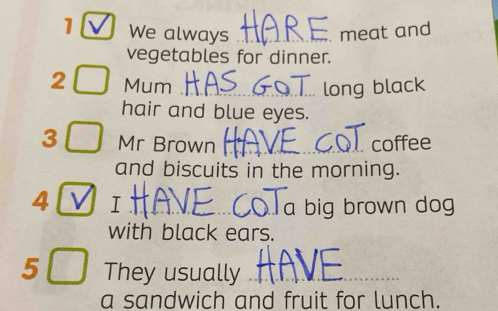 1 We always HARE meat and
vegetables for dinner.
2 Mum HAS GOT long black
hair and blue eyes.
3 Mr Brown HAVE COT coffee
and biscuits in the morning.
4 I HAVE COT a big brown dog
with black ears.
5 They usually HAVE
a sandwich and fruit for lunch.